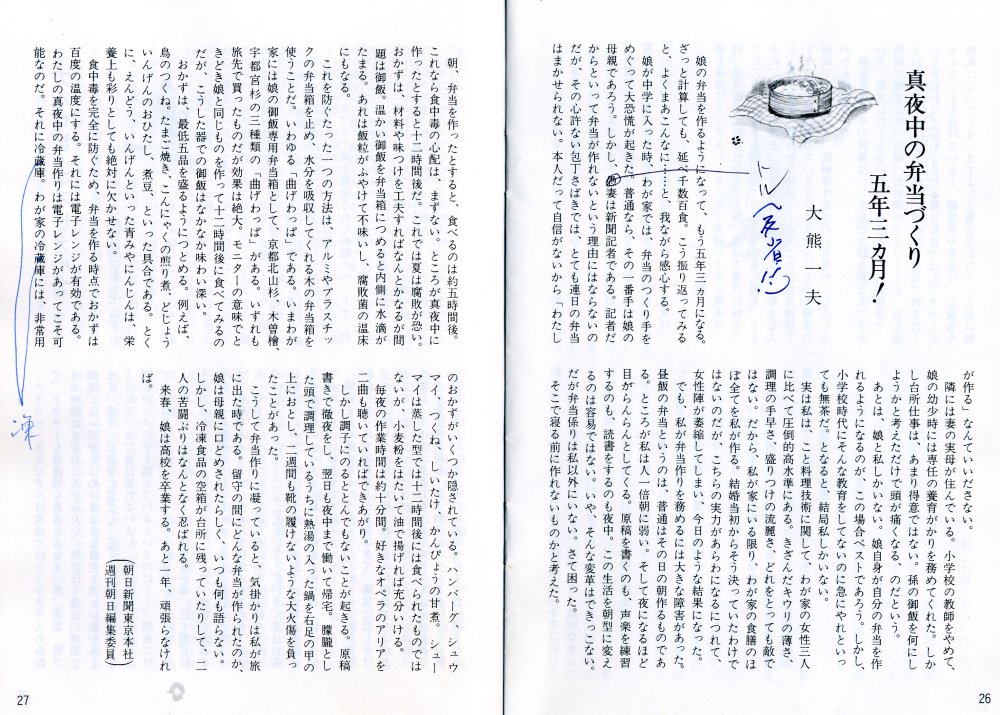 真夜中の弁当づくり
五年三カ月!
大熊一夫
娘の弁当を作るようになって、もう五年三ヵ月になる。
ざっと計算しても、延べ千数百食。こう振り返ってみる
と、よくまあこんなに……と、我ながら感心する。
娘が中学に入った時、わが家では、弁当のつくり手を
めぐって大恐慌が起きた。普通なら、その一番手は娘の
母親であろう。しかし、妻は新聞記者である。記者だ
からといって弁当が作れないという理由にはならないの
だが、その心許ない包丁さばきでは、とても連日の弁当
はまかせられない。本人だって自信がないから「わたし
が作る」なんていいださない。
隣には妻の実母が住んでいる。小学校の教師をやめて、
娘の幼少時には専任の養育がかりを務めてくれた。しか
し台所仕事は、あまり得意ではない。孫の御飯を何にし
ようかと考えただけで頭が痛くなる、のだという。
あとは、娘と私しかいない。娘自身が自分の弁当を作
れるようになるのが、この場合ベストであろう。しかし、
小学校時代にそんな教育をしてないのに急にやれといっ
ても無茶だ。となると、結局私しかいない。
実は私は、こと料理技術に関して、わが家の女性三人
に比べて圧倒的高水準にある。きざんだキウリの薄さ、
調理の手早さ、盛りつけの流麗さ、どれをとっても敵で
はない。だから、私が家にいる限り、わが家の食膳のほ
ぼ全てを私が作る。結婚当初からそう決っていたわけで
はないのだが、こちらの実力があらわになるにつれて、
女性陣が萎縮してしまい、今日のような結果になった。
でも、私が弁当作りを務めるには大きな障害があった。
昼飯の弁当というのは、普通はその日の朝作るものであ
る。ところが私は人一倍朝に弱い。そして夜になるほど
目がらんらんとしてくる。原稿を書くのも、声楽を練習
するのも、読書をするのも夜中。この生活を朝型に変え
るのは容易ではない。いや、そんな変革はできっこない。
だが弁当係りは私以外にいない。さて困った。
そこで寝る前に作れないものかと考えた。
トル
26
朝、弁当を作ったとすると、食べるのは約五時間後。
これなら食中毒の心配は、まずない。ところが真夜中に
作ったとすると十二時間後だ。これでは夏は腐敗が恐い。
おかずは、材料や味つけを工夫すればなんとかなるが問
題は御飯。温かい御飯を弁当箱につめると内側に水滴が
たまる。あれは飯粒がふやけて不味いし、腐敗菌の温床
にもなる。
これを防ぐたった一つの方法は、アルミやプラスチッ
クの弁当箱を止め、水分を吸収してくれる木の弁当箱を
使うことだ。いわゆる「曲げわっぱ」である。いまわが
家には娘の御飯専用弁当箱として、京都北山杉、木曽檜、
宇都宮杉の三種類の「曲げわっぱ」がある。いずれも
旅先で買ったものだが効果は絶大。モニターの意味でと
きどき娘と同じものを作って十二時間後に食べてみるの
だが、こうした器での御飯はなかなか味わい深い。
おかずは、最低五品を盛るようにつとめる。例えば、
鳥のつくね、たまご焼き、こんにゃくの煎り煮、どじょう
いんげんのおひたし、煮豆、といった具合である。とく
に、えんどう、いんげんといった青みやにんじんは、栄
養上も彩りとしても絶対に欠かせない。
食中毒を完全に防ぐため、弁当を作る時点でおかずは
百度の温度にする。それには電子レンジが有効である。
わたしの真夜中の弁当作りは電子レンジがあってこそ可
能なのだ。それに冷蔵庫。わが家の冷蔵庫には、非常用
のおかずがいくつか隠されている。ハンバーグ、シュウ
マイ、つくね、しいたけ、かんぴょうの甘煮。シュー
マイは蒸した型では十二時間後には食べられたものでは
ないが、小麦粉をはたいて油で揚げれば充分いける。
毎夜の作業時間は約十分間。好きなオペラのアリアを
二曲も聴いていればできあがり。
しかし調子にのるととんでもないことが起きる。原稿
書きで徹夜をし、翌日も夜中まで働いて帰宅。朦朧とし
た頭で調理しているうちに熱湯の入った鍋を右足の甲の
上におとし、二週間も靴の履けないような大火傷を負っ
たことがあった。
こうして弁当作りに凝っていると、気掛かりは私が旅
に出た時である。留守の間にどんな弁当が作られたのか、
娘は母親に口どめされたらしく、いつも何も語らない。
しかし、冷凍食品の空箱が台所に残っていたりして、二
人の苦闘ぶりはなんとなく忍ばれる。
来春、娘は高校を卒業する。あと一年、頑張らなけれ
ば。
(朝日新聞東京本社
週刊朝日編集委員)
凍
27